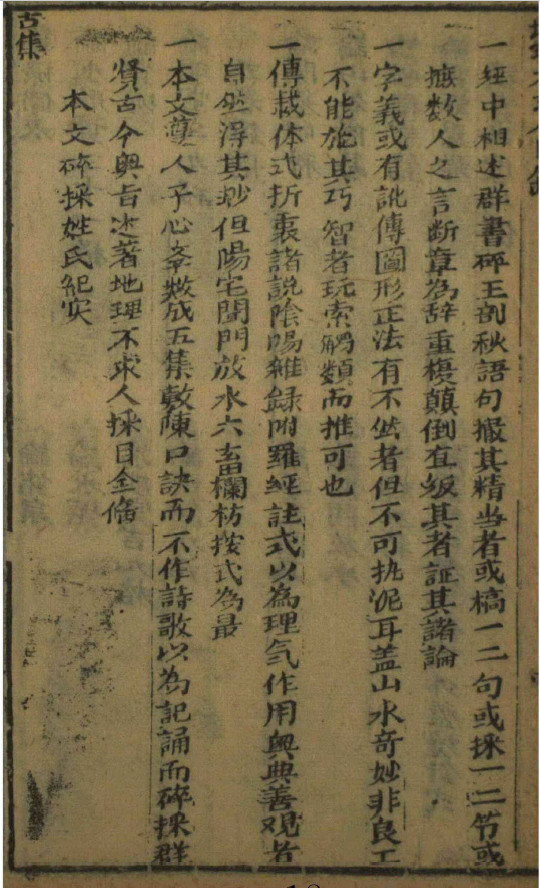 一經中相述群書碎玉剖秋語句撮其精当者或槁一二句或採一二節或
摭数人之言断章為辞重複顛倒直叙其者証其諸論
一字義或有訛傳圖形正法有不然者但不可执泥耳盖山水奇妙非良工
不能施其巧智者玩索觸類而推可也
一傳裁体式折衷諸說陰陽雜録附羅經註式以為理气作用奥典善观者
自然浔其妙但陽宅開門放水六畜欄枋按式為最
一本文 人子心 数成五集敷陳口訣而不作詩歌以為記誦而碎採群
賢古今奥旨述著地理不求人採目全俻
本文碎採姓氏紀实
古集